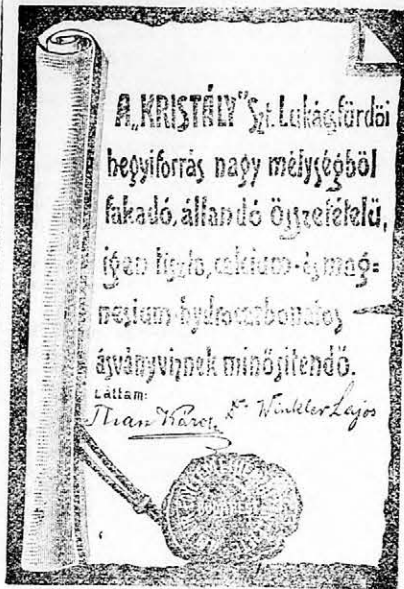 A „KRISTÁLY” Szt. Lukácsfürdői
hegyiforrás nagy mélységből
fakadó, állandó összetételű,
igen tiszta, calcium- és mag=
nesium-hydrocarbonatos
ásványviznek minősitendő.
Láttam:
Than Károly Dr. Winkler Lajos